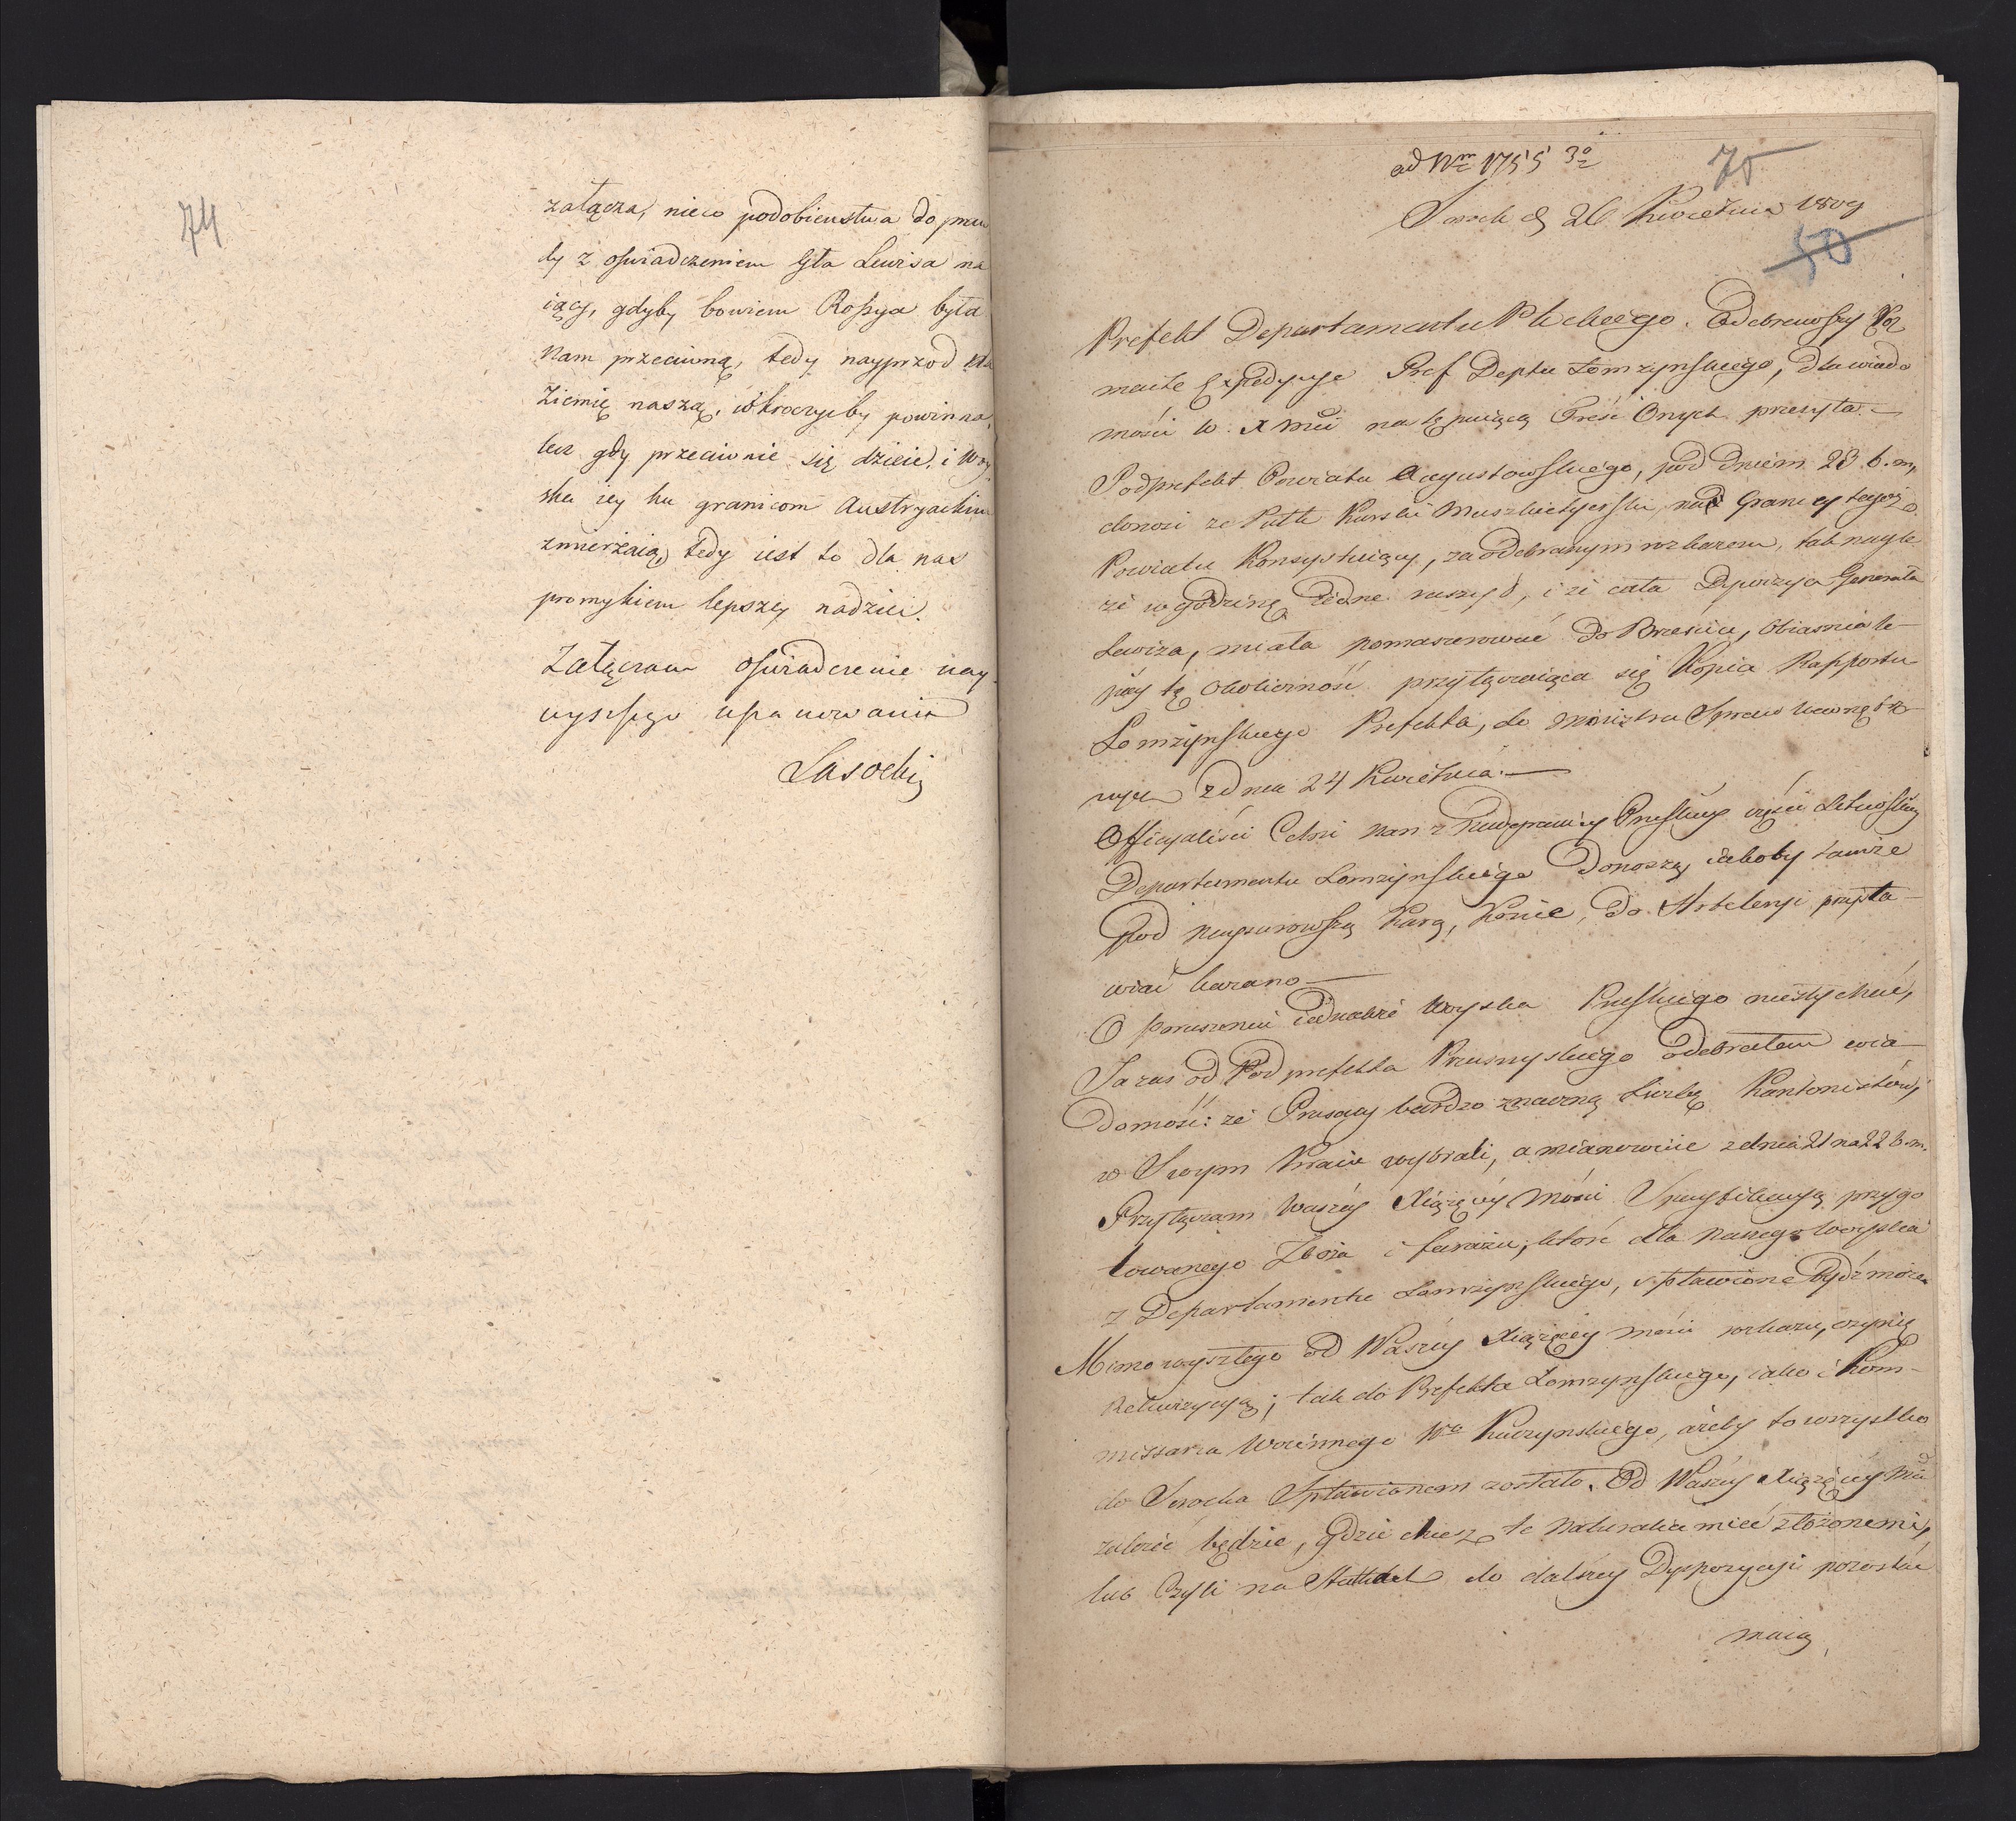 74
załącza, nieco podobieństwa do praw
dy z oswiadczeniem Gła Lewisa ma
iący, gdyby bowiem Rossya była
Nam przeciwną, tedy nayprzod na
Ziemię naszą, wkroczyćby powinna,
lecz gdy przeciwnie się dzieie, i Woy
ska iey ku granicom Austryackim
zmierzaią, tedy iest to dla nas
promykiem lepszey nadziei.
Załączam oswiadczenie nay
wyższego uszanowania
Lasocki
ad Nm 1755 3o
75
Serock d 26 Kwietnia 1809
50
Prefekt Departamentu Płockiego. Odebrawszy Roz
maite Expedycye Pref Deptu Łomzynskiego, dla wiado
mości W. X Mci następuiącą Treść Onych przesyła.—
Podprefekt Powiatu Augustowskiego, pod Dniem 23 b. m,
donosi ze Pułk Kurski Muszkietyerski, nad Granicy tegoż
Powiatu Konsystuiący, za odebranym rozkazem, tak nagle
że w godzinę iedne ruszył, i że cała Dywizya Generała
Lewiza, miała pomaszerować do Brześcia, Obiasnia le—
piey tę okoliczność przyłączaiąca się Kopia Rapportu
Łomzynskiego Prefekta, do Ministra Spraw Wewnętrz—
nych z dnia 24 Kwietnia.—
Officyaliści Celni Nam z Nadgranicy Pruskiey części Litewskiey
Departamentu Łomzynskiego Donoszą iakoby tamże
Pod naysurowszą Karą, Konie, do Artyleryi przysta—
wiać kazano—
O poruszeniu iednakże Woyska Pruskiego nie słychać,
Ja zas od Podprefekta Przasnyskiego odebrałem wia—
domość: że Prusacy bardzo znaczną Liczbę Kantonistów,
w Swym Kraiu wybrali, a mianowicie z dnia 21 na 22 b. m.
Przyłączam Waszey Xiążęcey Mości Specyfikacyą przygo
towanego Zboża i furażu, które dla Naszego Woyska
z Departamentu Łomzynskiego, spławione bydź może.
Mimo wyszłego od Waszey Xiążęcey Mości rozkazu, czynię
Rekwizycyą; tak do Prefekta Łomzynskiego, iako i Kom—
missarza Woiennego Wo Kuczynskiego, ażeby to wszystko
do Serocka Spławionem zostało. Od Waszey Xiążęcey Mci
zależeć będzie, gdzie chcesz te Naturalia mieć złożonemi,
lub czyli na Statkach do dalszey Dyspozycyi pozostać
maią,